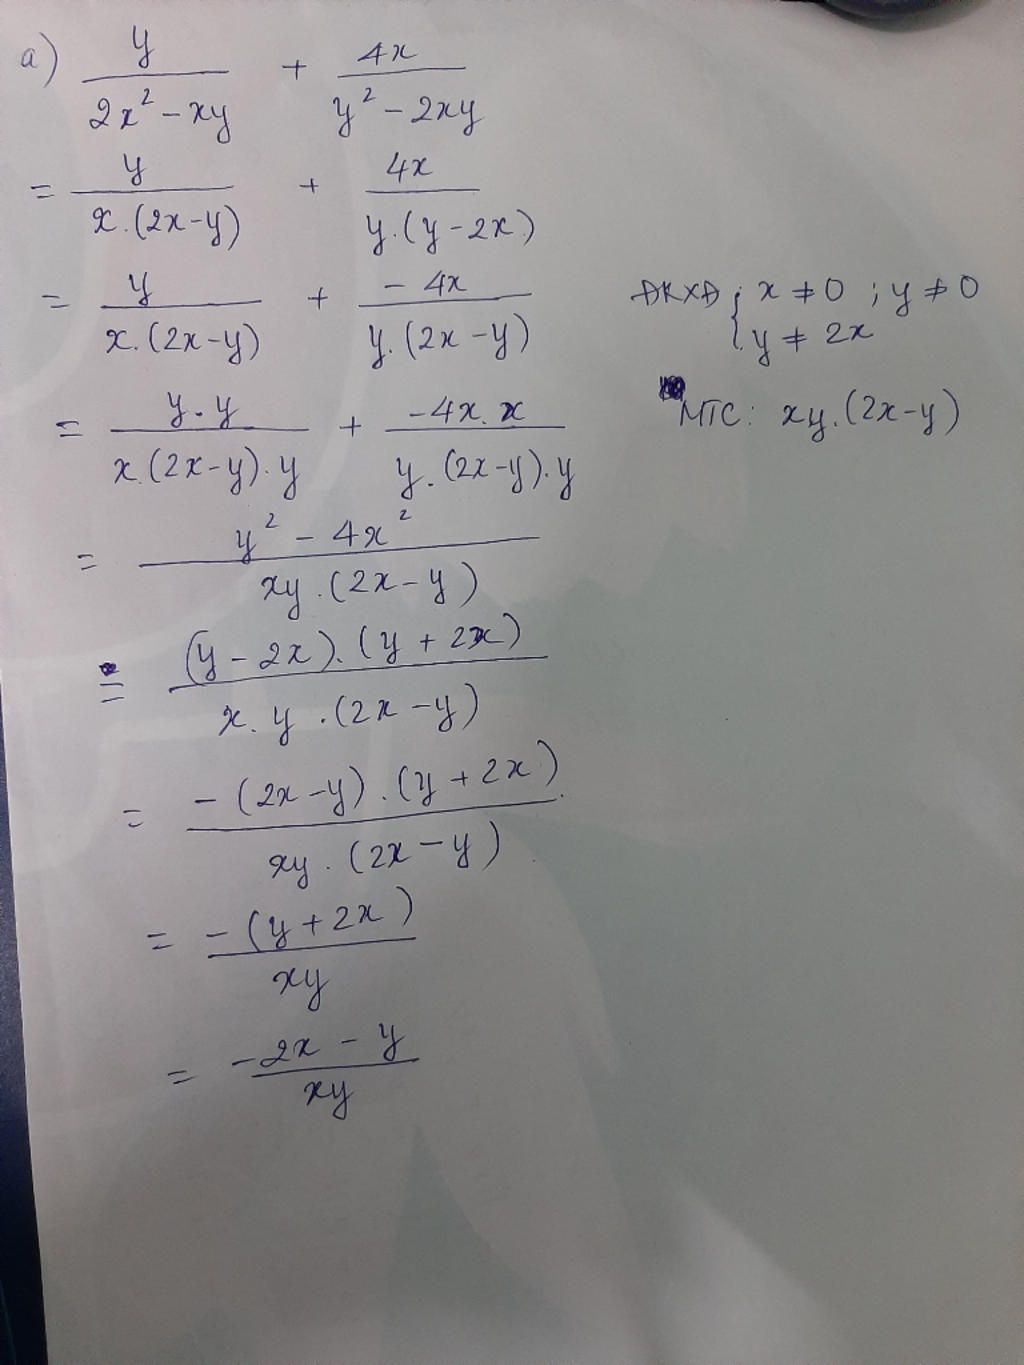 a) y/(2x² - xy) + 4x/(y² - 2xy)
= y/(x.(2x-y)) + 4x/(y.(y-2x))
= y/(x.(2x-y)) + -4x/(y.(2x-y))
ĐKXĐ { x ≠ 0 ; y ≠ 0
y ≠ 2x
= y.y/(x.(2x-y).y) + -4x.x/(y.(2x-y).y)
MTC: xy.(2x-y)
= (y² - 4x²)/(xy.(2x-y))
= (y-2x).(y+2x)/(x.y.(2x-y))
= -(2x-y).(y+2x)/(xy.(2x-y))
= -(y+2x)/xy
= (-2x-y)/xy